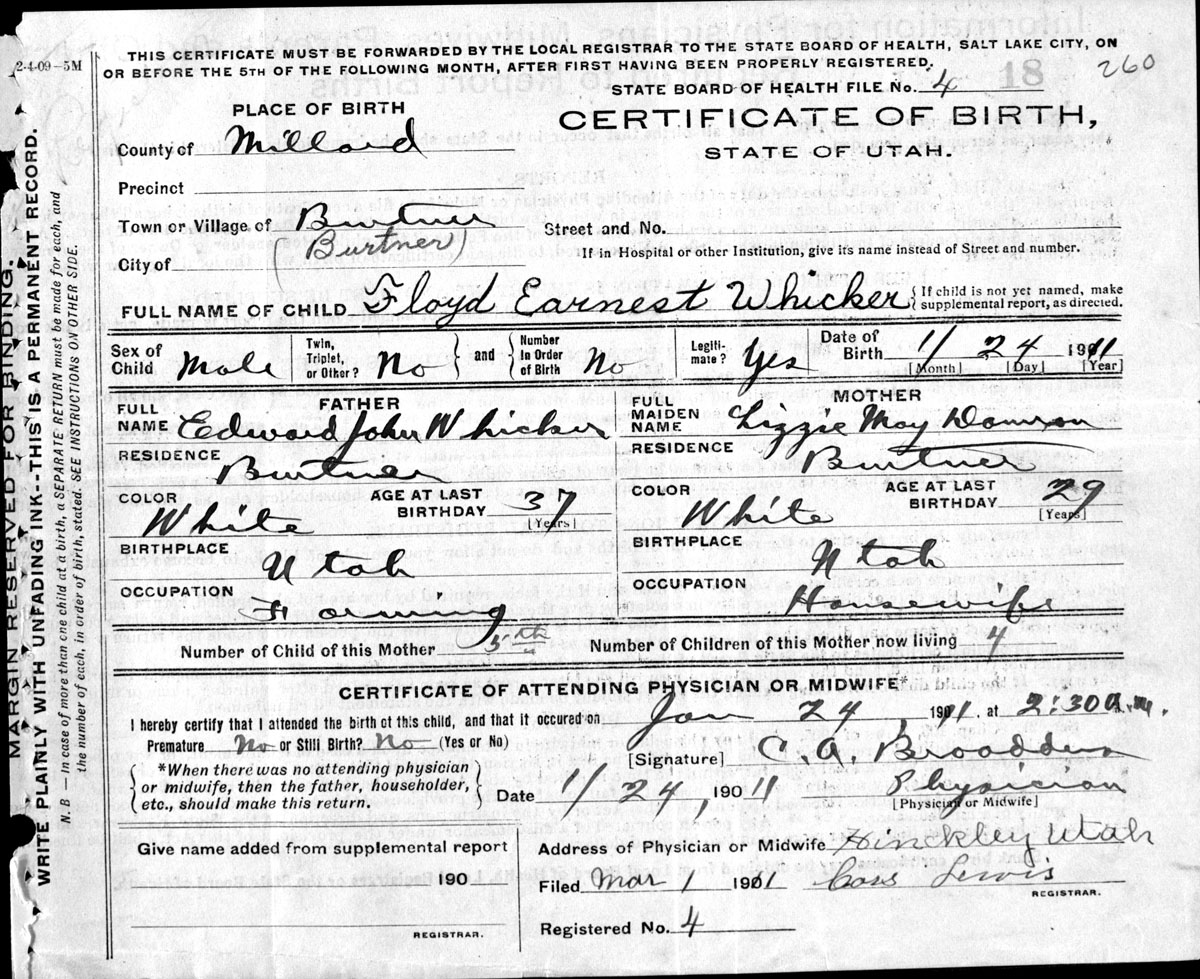 2-4-09-5M
THIS CERTIFICATE MUST BE FORWARDED BY THE LOCAL REGISTRAR TO THE STATE BOARD OF HEALTH, SALT LAKE CITY, ON
OR BEFORE THE 5TH OF THE FOLLOWING MONTH, AFTER FIRST HAVING BEEN PROPERLY REGISTERED.
18
260
STATE BOARD OF HEALTH FILE No. 4
PLACE OF BIRTH
CERTIFICATE OF BIRTH,
STATE OF UTAH.
County of Millard
Precinct
Town or Village of Burtner
Street and No.
(Burtner)
City of
If in Hospital or other Institution, give its name instead of Street and number.
FULL NAME OF CHILD Floyd Earnest Whicker { If child is not yet named, make supplemental report, as directed.
Sex of Child Male Twin, Triplet, or Other? No } and { Number In Order of Birth No Legiti- mate? Yes Date of Birth 1/ 24 1911
[Month] [Day] [Year]
FATHER
FULL NAME Edward John Whicker
RESIDENCE Burtner
COLOR White AGE AT LAST BIRTHDAY 37 [Years]
BIRTHPLACE Utah
OCCUPATION Farming
MOTHER
FULL MAIDEN NAME Lizzie May Damron
RESIDENCE Burtner
COLOR White AGE AT LAST BIRTHDAY 29 [Years]
BIRTHPLACE Utah
OCCUPATION Housewife
Number of Child of this Mother 5th Number of Children of this Mother now living 4
CERTIFICATE OF ATTENDING PHYSICIAN OR MIDWIFE*
I hereby certify that I attended the birth of this child, and that it occured on Jan 24, 1911, at 2:30 a.m.
Premature No or Still Birth? No (Yes or No)
[Signature] C. A. Broaddus
{ *When there was no attending physician
or midwife, then the father, householder,
etc., should make this return. }
Date 1/ 24, 1911 Physician
[Physician or Midwife]
Give name added from supplemental report
190
REGISTRAR.
Address of Physician or Midwife Hinckley Utah
Filed Mar 1 1911 Lewis
REGISTRAR.
Registered No. 4
MARGIN RESERVED FOR BINDING.
WRITE PLAINLY WITH UNFADING INK--THIS IS A PERMANENT RECORD.
N. B — In case of more than one child at a birth, a SEPARATE RETURN must be made for each, and
the number of each, in order of birth, stated. SEE INSTRUCTIONS ON OTHER SIDE.